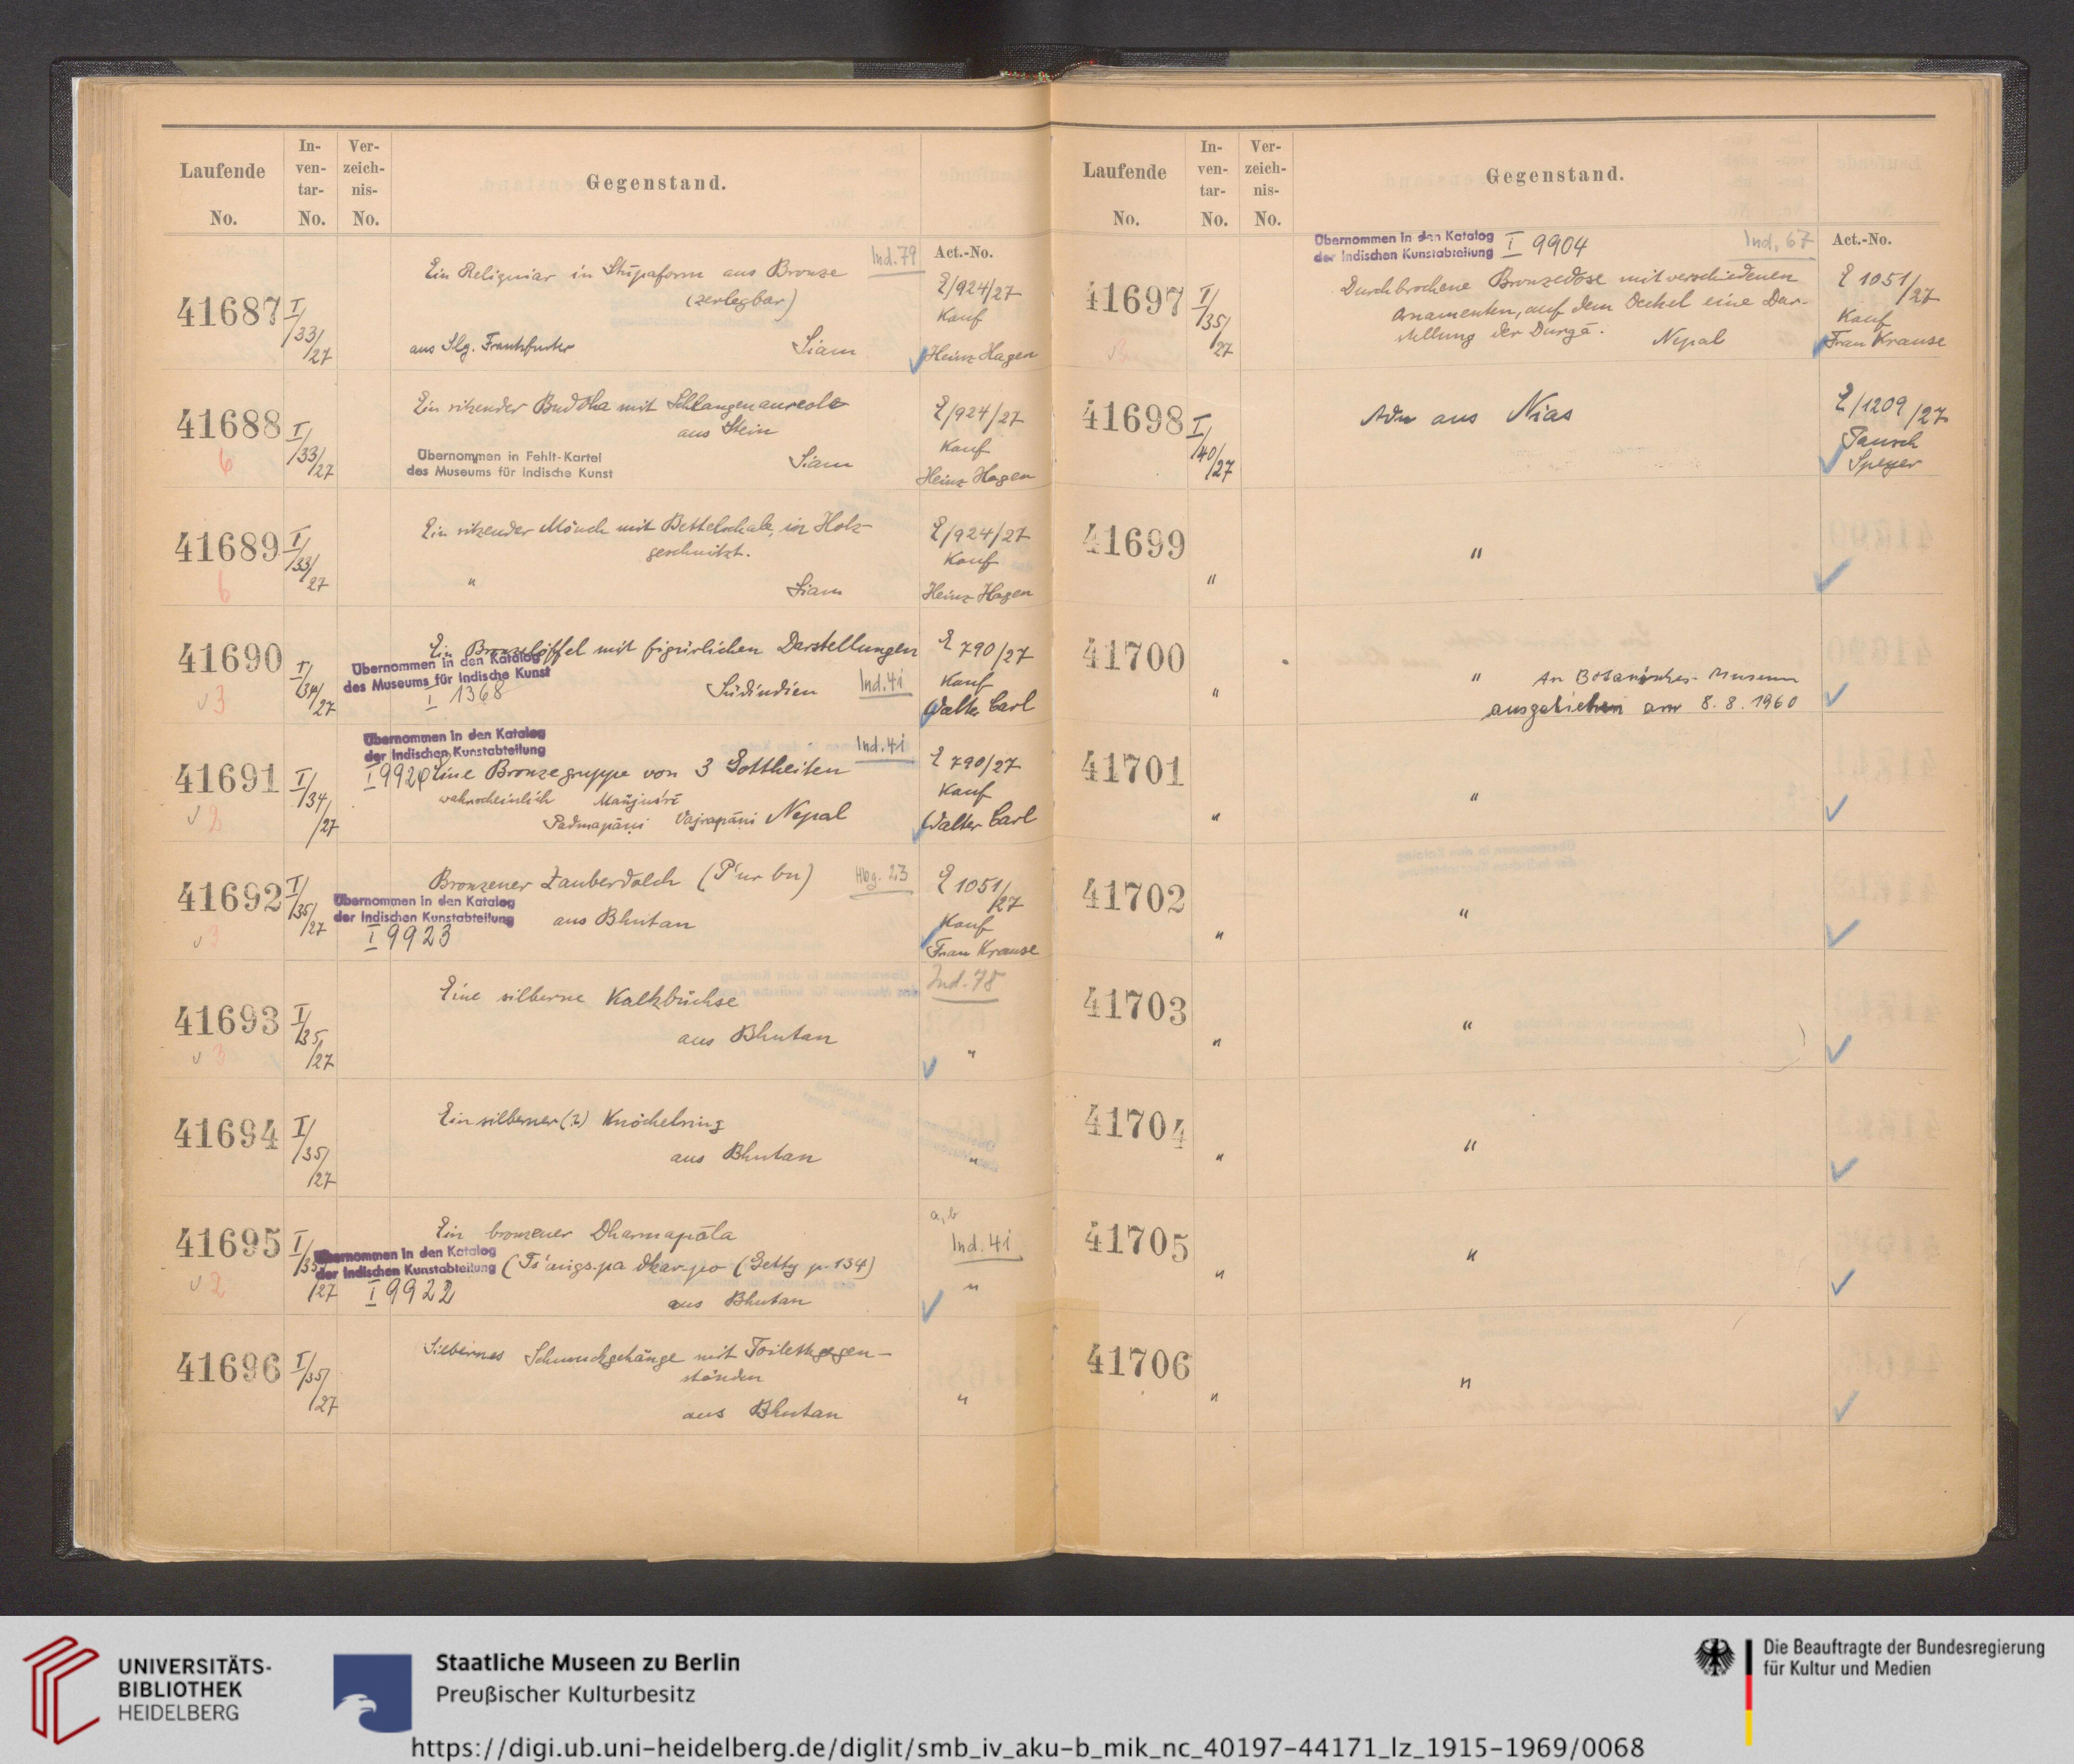 Laufende
No.
In-
ven-
tar-
No.
Ver-
zeich-
nis-
No.
Gegenstand.
Act.-No.
41687
I/33/27
Ein Reliquiar in Stūpaform aus Bronze
(zerlegbar)
aus Slg. Frankfurter
Siam
Ind. 79
E/924/27
Kauf
Heinz Hagen
41688
6
I/33/27
Ein sitzender Buddha mit Schlangenaureole
aus Stein
Übernommen in Fehlt-Kartei
des Museums für Indische Kunst
Siam
E/924/27
Kauf
Heinz Hagen
41689
6
I/33/27
Ein sitzender Mönch mit Bettelschale, in Holz
geschnitzt.
"
Siam
E/924/27
Kauf
Heinz Hagen
41690
v 3
I/34/27
Ein Bronzelöffel mit figürlichen Darstellungen
Übernommen in den Katalog
des Museums für Indische Kunst
I 1368
Südindien
Ind. 4i
E 790/27
Kauf
Walter Carl
Übernommen in den Katalog
der Indischen Kunstabteilung
Ind. 4i
41691
v 2
I/34/27
I 9924 Eine Bronzegruppe von 3 Gottheiten
wahrscheinlich Mañjuśrī
Padmapāṇi Vajrapāṇi Nepal
E 790/27
Kauf
Walter Carl
41692
v 3
I/35/27
Bronzener Zauberdolch (P'ur bu)
Hbg. 23
Übernommen in den Katalog
der Indischen Kunstabteilung
I 9923
aus Bhutan
E 1051/27
Kauf
Frau Krause
41693
v 3
I/35/27
Eine silberne Kalkbüchse
aus Bhutan
Ind. 78
"
41694
I/35/27
Ein silberner (?) Knöchelring
aus Bhutan
"
41695
v 2
I/35/27
Ein bronzener Dharmapāla
Übernommen in den Katalog
der Indischen Kunstabteilung
(Ts'angs-pa dkar-po (Getty p. 134)
I 9922
aus Bhutan
a, b
Ind. 4i
"
41696
I/35/27
Silbernes Schmuckgehänge mit Toilettgegen-
ständen
aus Bhutan
"
Laufende
No.
In-
ven-
tar-
No.
Ver-
zeich-
nis-
No.
Gegenstand.
Act.-No.
Übernommen in den Katalog
der Indischen Kunstabteilung
I 9904
Ind. 67
41697
I/35/27
Durchbrochene Bronzedose mit verschiedenen
Ornamenten, auf dem Deckel eine Dar-
stellung der Durgā.
Nepal
E 1051/27
Kauf
Frau Krause
41698
I/40/27
Adu aus Nias
E/1209/27
Tausch
Speyer
41699
"
"
41700
"
" An Botanisches Museum
ausgeliehen am 8.8.1960
41701
"
"
41702
"
"
41703
"
"
41704
"
"
41705
"
"
41706
"
"
UNIVERSITÄTS-
BIBLIOTHEK
HEIDELBERG
Staatliche Museen zu Berlin
Preußischer Kulturbesitz
Die Beauftragte der Bundesregierung
für Kultur und Medien
https://digi.ub.uni-heidelberg.de/diglit/smb_iv_aku-b_mik_nc_40197-44171_lz_1915-1969/0068